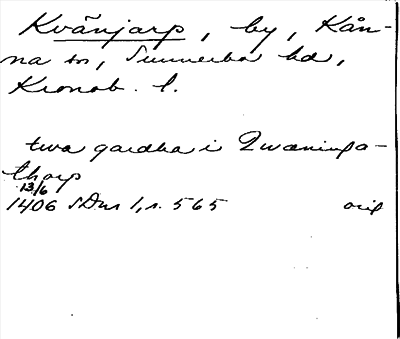 Kvänjarp, by, Kån-
na sn, Sunnerbo hd,
Kronob. l.
twa gardha i Qwæninga-
thorp
13/6
1406 SDns 1, s. 565 orig